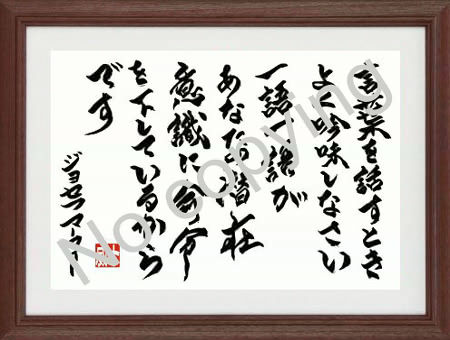 言葉を話すとき
よく吟味しなさい
一語一語が
あなたの潜在
意識に命令
を下しているから
です
ジョセフマーフィー
No copying